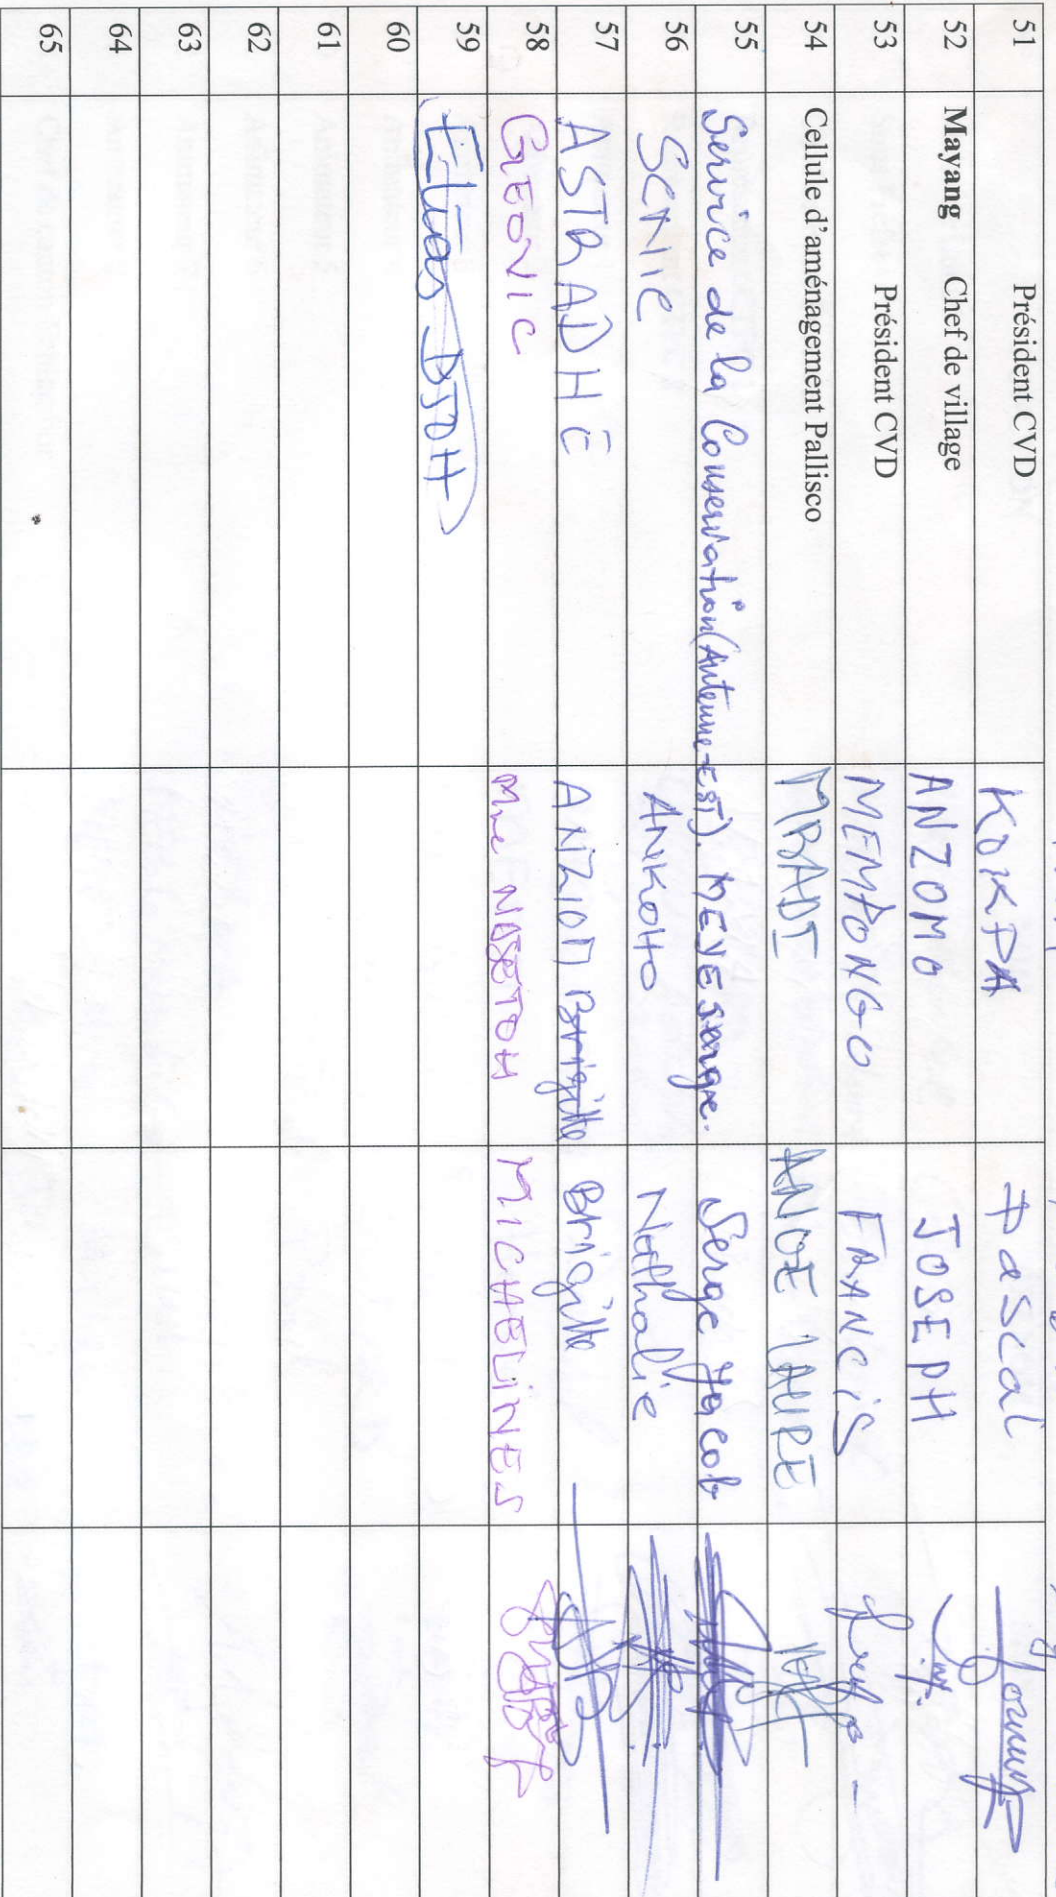 51 Président CVD KOKPA Pascal
52 Mayang Chef de village ANZOMO JOSEPH
53 Président CVD MEMPONGO FRANCIS
54 Cellule d'aménagement Pallisco MBADI ANGE LAURE
55 Service de la Conservation (Antenne-EST). MEYE Serge Jacob
56 SCNIC ANKOHO Nathalie
57 ASTRADHE ANZIOM Brigitte Brigitte
58 GEOVIC Mme MICHABLINES
59
60
61
62
63
64
65